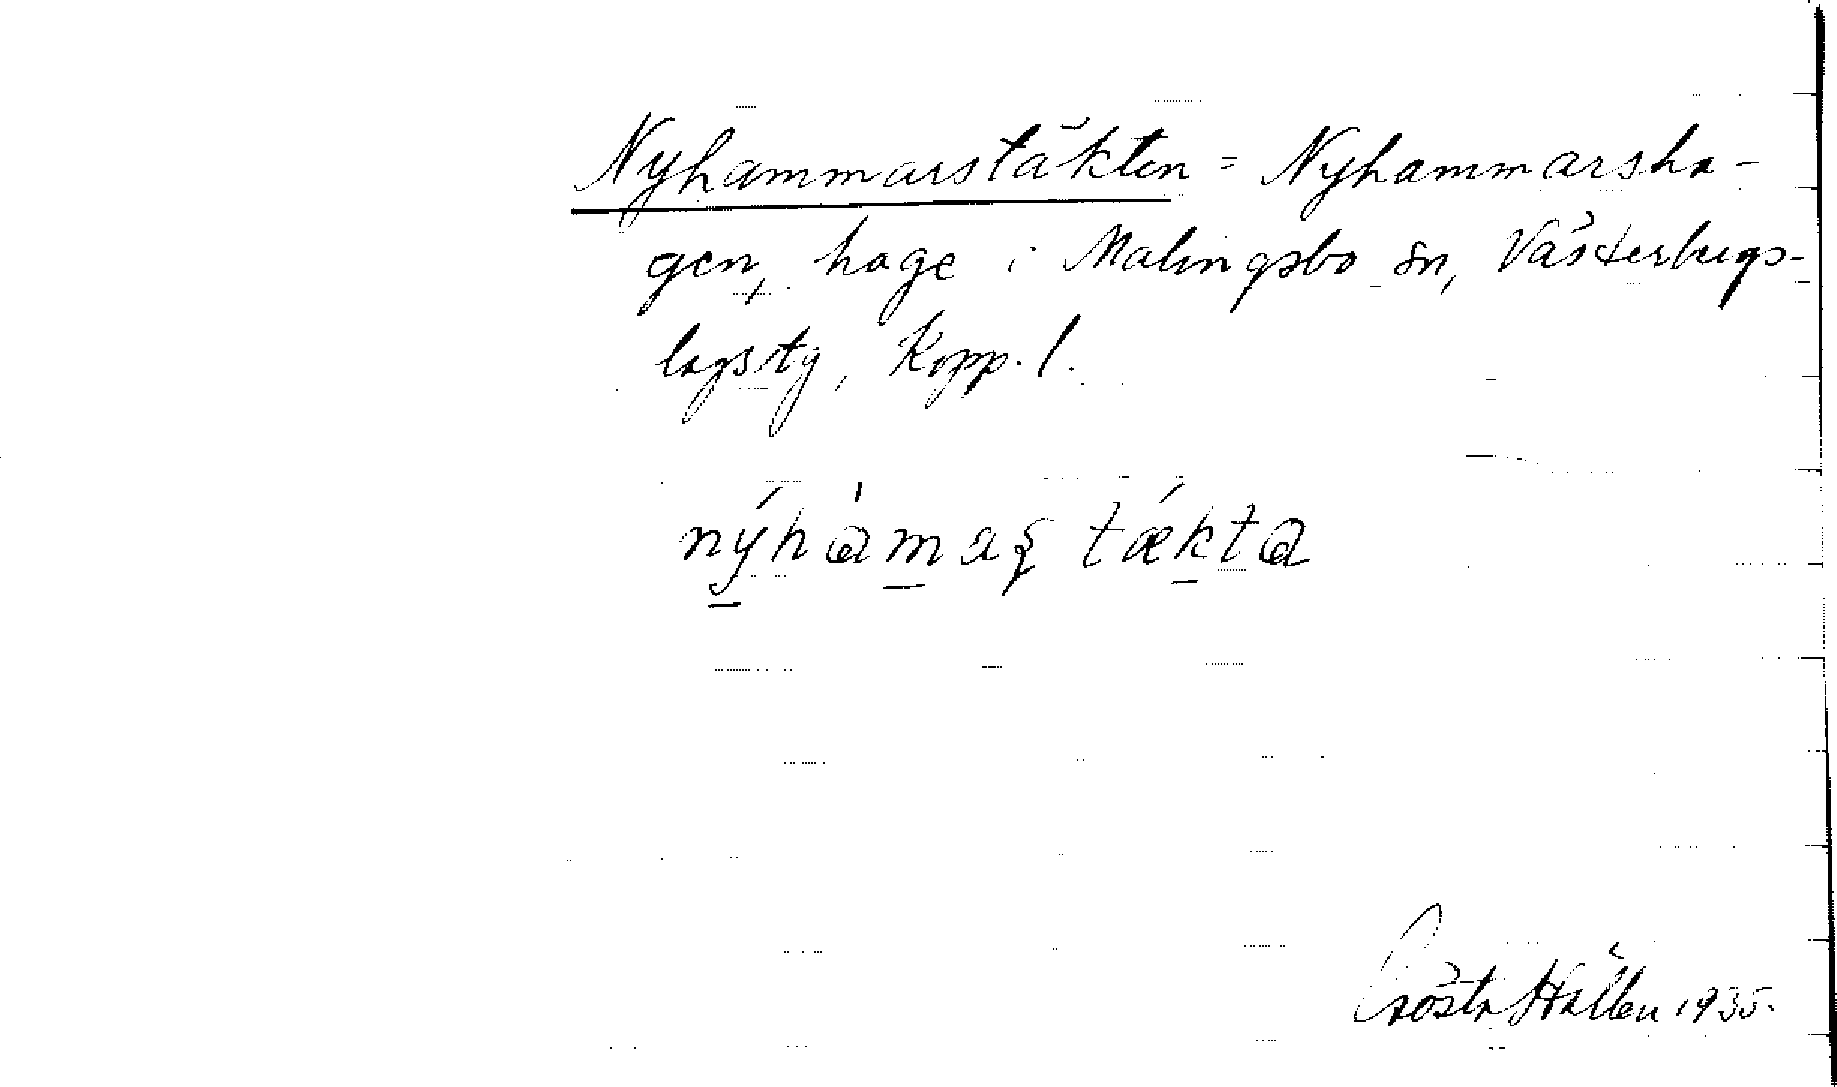 Nyhammarstäkten = Nyhammarsha-
gen, hage i Malingsbo sn, Västerbergs-
lagstg, Kopp. l.
nýhàmaʂ tǽkta
Gösta Hällen 1935.